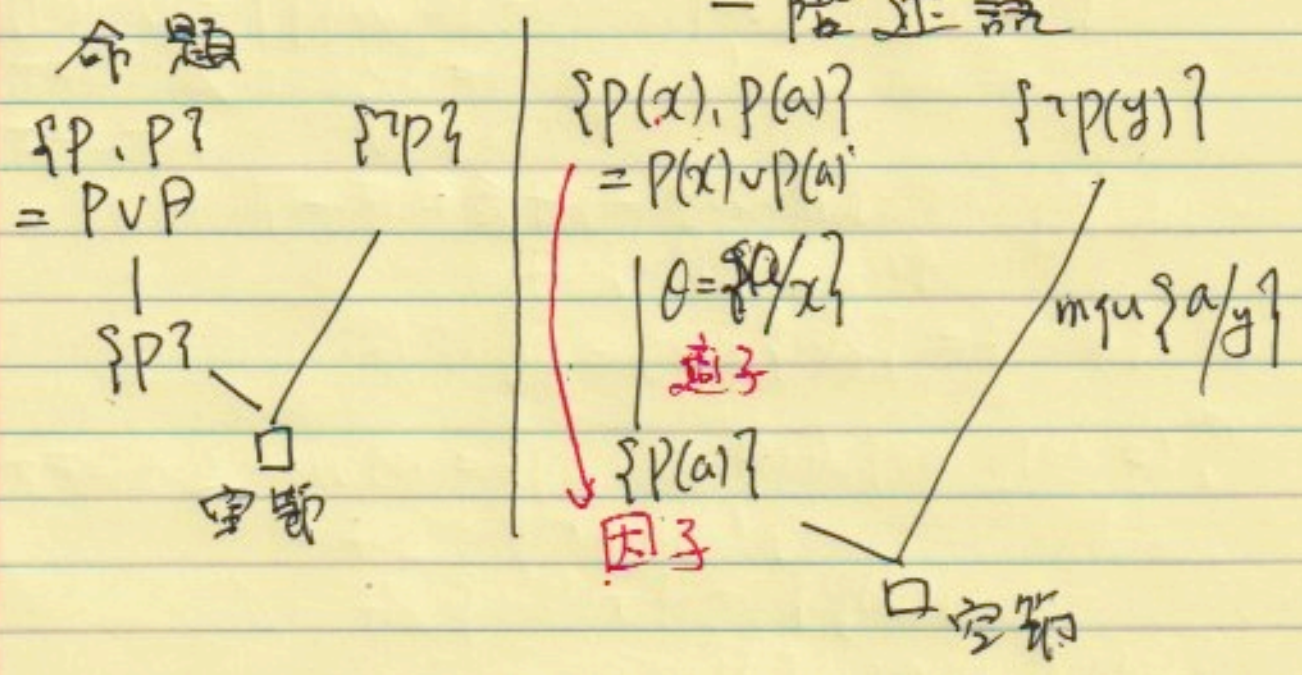 命題
{P、P}
= P∨P
{¬P}
{P}
□
空節
一階述語
{P(x)、P(a)}
= P(x)∨P(a)
{¬P(y)}
θ={a/x}
因子
{P(a)}
因子
mgu {a/y}
□ 空節